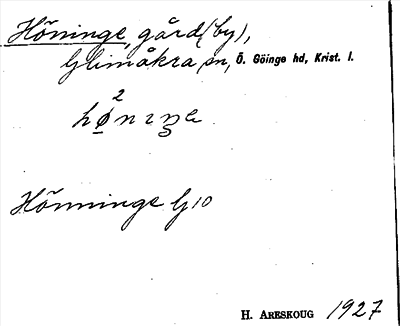 Höninge, gård (by),
Glimåkra sn, Ö. Göinge hd, Krist. l.
Hönninge G10
H. ARESKOUG 1927